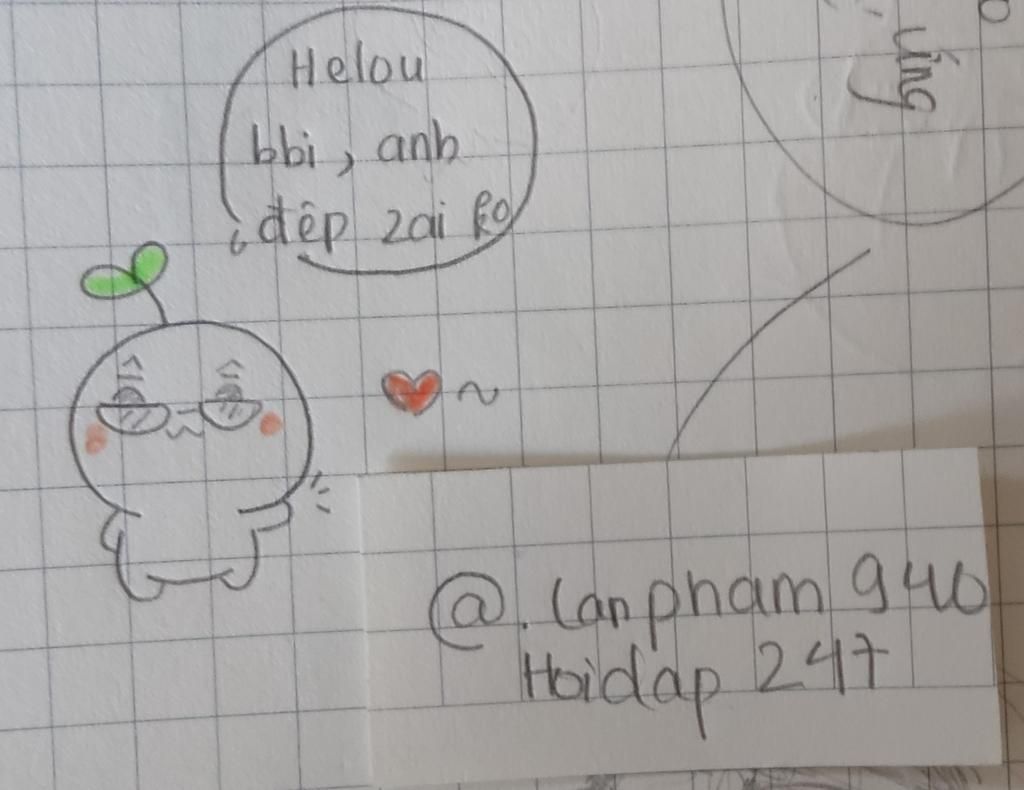 Helou
bbi, anh
đẹp zai ko
ứng
@.lanpham940
Hoidap 247